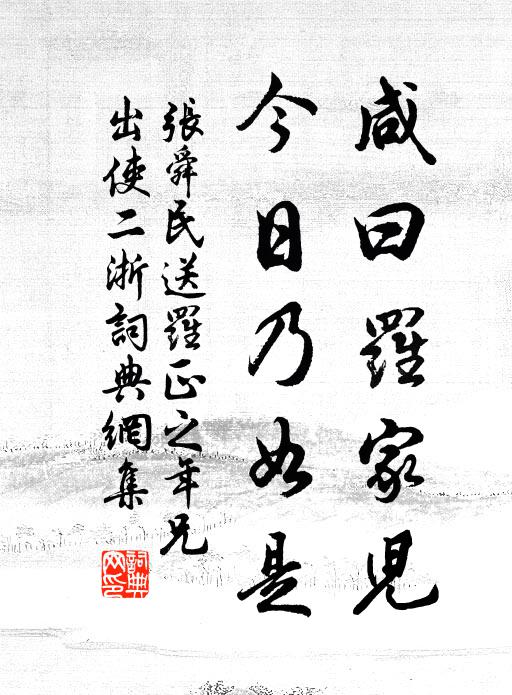 咸曰羅家兒
今日乃如是
張舜民送羅正之年兄
出使二浙詞典網集
詞典網印